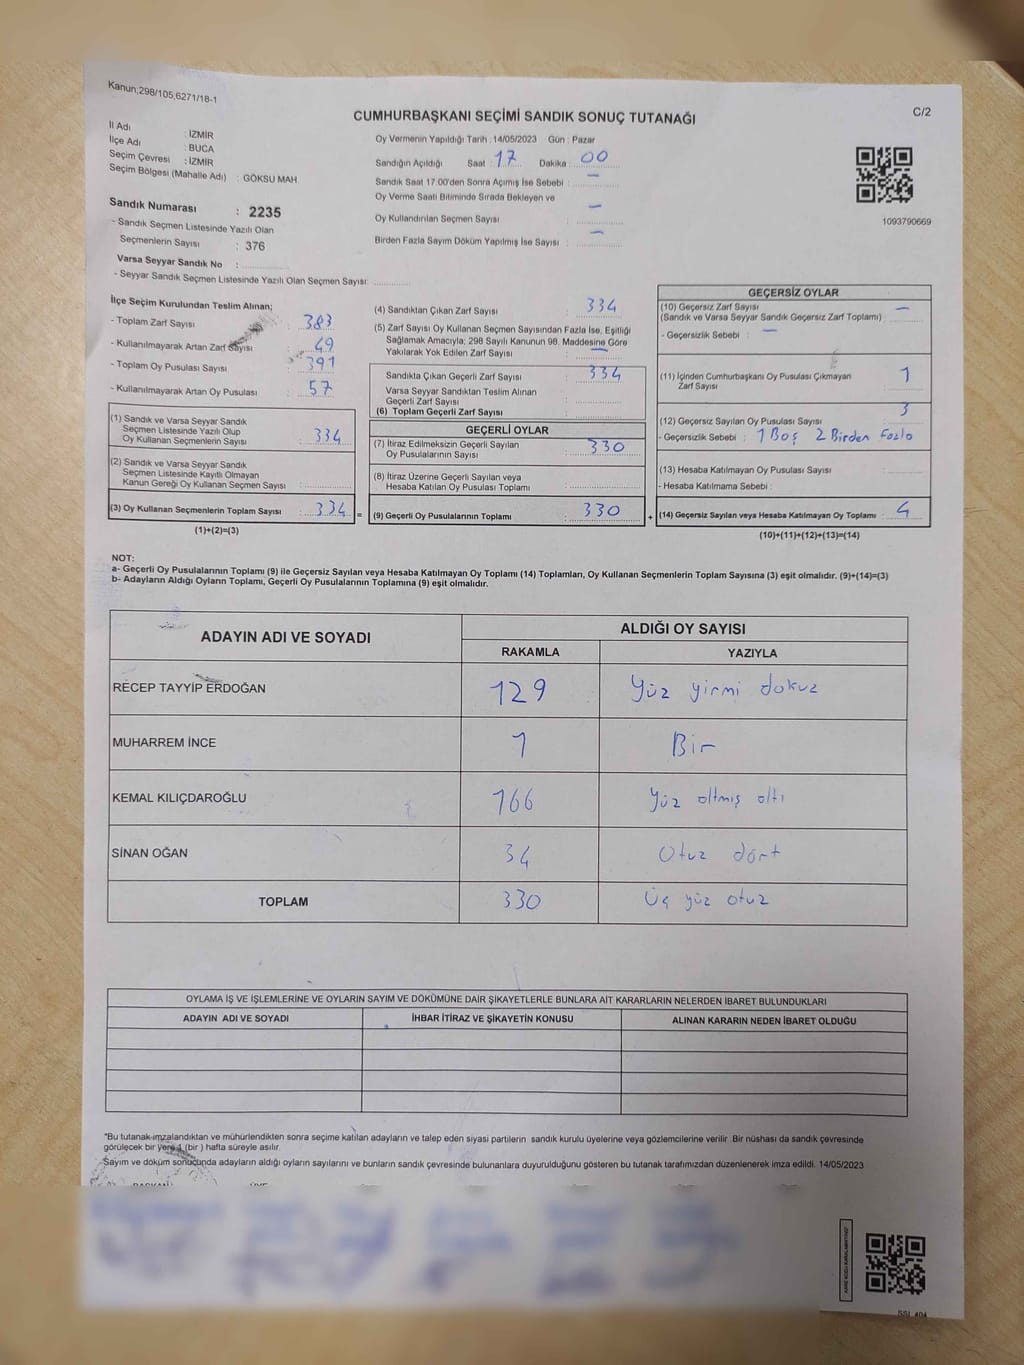 Kanun;298/105;6271/18-1
CUMHURBAŞKANI SEÇİMİ SANDIK SONUÇ TUTANAĞI
C/2
İl Adı : İZMİR
İlçe Adı : BUCA
Seçim Çevresi : İZMİR
Seçim Bölgesi (Mahalle Adı) : GÖKSU MAH.
Sandık Numarası : 2235
- Sandık Seçmen Listesinde Yazılı Olan
Seçmenlerin Sayısı : 376
Varsa Seyyar Sandık No :
- Seyyar Sandık Seçmen Listesinde Yazılı Olan Seçmen Sayısı:
Oy Vermenin Yapıldığı Tarih : 14/05/2023 Gün : Pazar
Sandığın Açıldığı Saat : 17 Dakika : 00
Sandık Saat 17.00'den Sonra Açılmış İse Sebebi : —
Oy Verme Saati Bitiminde Sırada Bekleyen ve
Oy Kullandırılan Seçmen Sayısı : —
Birden Fazla Sayım Döküm Yapılmış İse Sayısı : —
1093790669
İlçe Seçim Kurulundan Teslim Alınan;
- Toplam Zarf Sayısı : 383
- Kullanılmayarak Artan Zarf Sayısı : 49
- Toplam Oy Pusulası Sayısı : 391
- Kullanılmayarak Artan Oy Pusulası : 57
(1) Sandık ve Varsa Seyyar Sandık
Seçmen Listesinde Yazılı Olup
Oy Kullanan Seçmenlerin Sayısı : 334
(2) Sandık ve Varsa Seyyar Sandık
Seçmen Listesinde Kayıtlı Olmayan
Kanun Gereği Oy Kullanan Seçmen Sayısı :
(3) Oy Kullanan Seçmenlerin Toplam Sayısı : 334
(1)+(2)=(3)
(4) Sandıktan Çıkan Zarf Sayısı : 334
(5) Zarf Sayısı Oy Kullanan Seçmen Sayısından Fazla İse, Eşitliği
Sağlamak Amacıyla; 298 Sayılı Kanunun 98. Maddesine Göre
Yakılarak Yok Edilen Zarf Sayısı : —
Sandıkta Çıkan Geçerli Zarf Sayısı : 334
Varsa Seyyar Sandıktan Teslim Alınan
Geçerli Zarf Sayısı :
(6) Toplam Geçerli Zarf Sayısı :
GEÇERLİ OYLAR
(7) İtiraz Edilmeksizin Geçerli Sayılan
Oy Pusulalarının Sayısı : 330
(8) İtiraz Üzerine Geçerli Sayılan veya
Hesaba Katılan Oy Pusulası Toplamı :
= (9) Geçerli Oy Pusulalarının Toplamı : 330 +
GEÇERSİZ OYLAR
(10) Geçersiz Zarf Sayısı —
(Sandık ve Varsa Seyyar Sandık Geçersiz Zarf Toplamı) :
- Geçersizlik Sebebi : —
(11) İçinden Cumhurbaşkanı Oy Pusulası Çıkmayan
Zarf Sayısı : 1
(12) Geçersiz Sayılan Oy Pusulası Sayısı : 3
- Geçersizlik Sebebi : 1 Boş 2 Birden Fazla
(13) Hesaba Katılmayan Oy Pusulası Sayısı :
- Hesaba Katılmama Sebebi :
(14) Geçersiz Sayılan veya Hesaba Katılmayan Oy Toplamı : 4
(10)+(11)+(12)+(13)=(14)
NOT:
a- Geçerli Oy Pusulalarının Toplamı (9) ile Geçersiz Sayılan veya Hesaba Katılmayan Oy Toplamı (14) Toplamları, Oy Kullanan Seçmenlerin Toplam Sayısına (3) eşit olmalıdır. (9)+(14)=(3)
b- Adayların Aldığı Oyların Toplamı, Geçerli Oy Pusulalarının Toplamına (9) eşit olmalıdır.
ADAYIN ADI VE SOYADI
ALDIĞI OY SAYISI
RAKAMLA YAZIYLA
RECEP TAYYİP ERDOĞAN 129 Yüz yirmi dokuz
MUHARREM İNCE 1 Bir
KEMAL KILIÇDAROĞLU 166 Yüz altmış altı
SİNAN OĞAN 34 Otuz dört
TOPLAM 330 Üç yüz otuz
OYLAMA İŞ VE İŞLEMLERİNE VE OYLARIN SAYIM VE DÖKÜMÜNE DAİR ŞİKAYETLERLE BUNLARA AİT KARARLARIN NELERDEN İBARET BULUNDUKLARI
ADAYIN ADI VE SOYADI İHBAR İTİRAZ VE ŞİKAYETİN KONUSU ALINAN KARARIN NEDEN İBARET OLDUĞU
*Bu tutanak imzalandıktan ve mühürlendikten sonra seçime katılan adayların ve talep eden siyasi partilerin sandık kurulu üyelerine veya gözlemcilerine verilir. Bir nüshası da sandık çevresinde
görülecek bir yere 1 (bir ) hafta süreyle asılır.
Sayım ve döküm sonucunda adayların aldığı oyların sayılarını ve bunların sandık çevresinde bulunanlara duyurulduğunu gösteren bu tutanak tarafımızdan düzenlenerek imza edildi. 14/05/2023